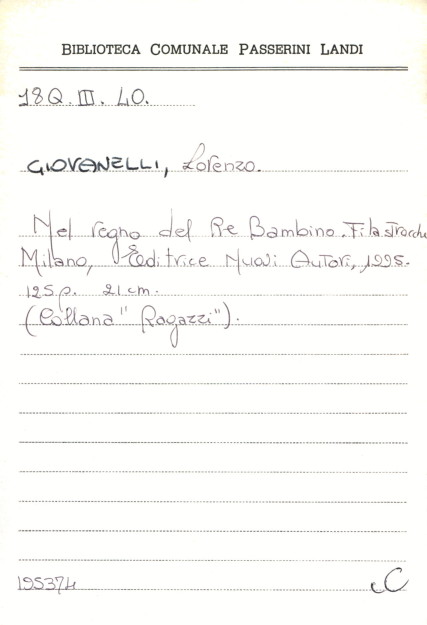 BIBLIOTECA COMUNALE PASSERINI LANDI
18Q. III. 40.
GIOVANELLI, Lorenzo.
Nel regno del Re Bambino. Filastrocche
Milano, Editrice Nuovi Autori, 1995.
125 p. 21 cm.
(Collana "Ragazzi").
195374 C